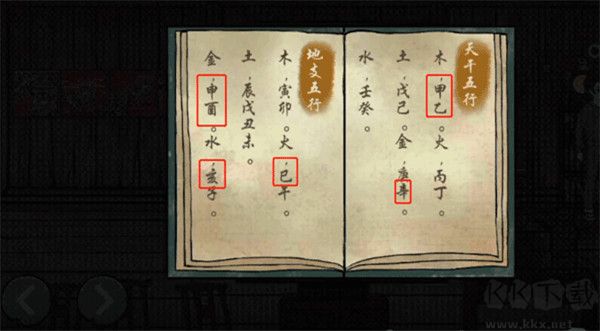 天干五行
木，甲乙。火，丙丁。
土，戊己。金，庚辛。
水，壬癸。
地支五行
木，寅卯。火，巳午。
土，辰戌丑未。
金，申酉。水，亥子。
KK下载
www.kkx.net